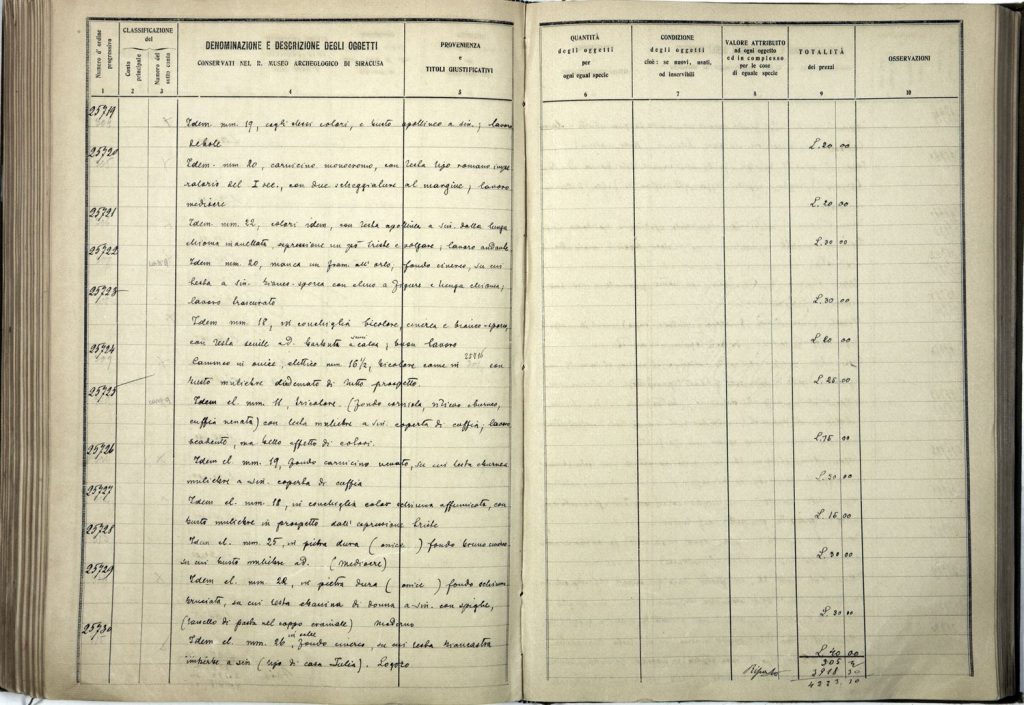 Numero d'ordine progressivo
CLASSIFICAZIONE
del
Conto principale
Numero del sotto conto
DENOMINAZIONE E DESCRIZIONE DEGLI OGGETTI
CONSERVATI NEL R. MUSEO ARCHEOLOGICO DI SIRACUSA
PROVENIENZA
e
TITOLI GIUSTIFICATIVI
QUANTITÀ
degli oggetti
per
ogni egual specie
CONDIZIONE
degli oggetti
cioè: se nuovi, usati,
od inservibili
VALORE ATTRIBUITO
ad ogni oggetto
ed in complesso
per le cose
di eguale specie
TOTALITÀ
dei prezzi
OSSERVAZIONI
1 2 3 4 5 6 7 8 9 10
25719
Idem mm. 19, cogli stessi colori, e busto apollineo a sin.; lavoro
debole
L. 20 00
25720
Idem. mm. 20, carnicino monocromo, con testa tipo romano impe
ratorio del I sec., con due scheggiature al margine; lavoro
mediocre
L. 20 00
25721
Idem mm. 22, colori idem, con testa apollinea a sin. dalla lunga
chioma inanellata, espressione un po' triste e volgare; lavoro andante
L. 30 00
25722
Idem mm. 20, manca un fram. all'orlo, fondo cinereo, su cui
testa a sin. bianco-sporca con elmo a figure e lunga chioma;
lavoro trascurato
L. 30 00
25723
Idem mm. 18, in conchiglia bicolore, cinerea e bianco-sporco,
con testa senile a d. barbuta e calva; buon lavoro
L. 20 00
25724
Cammeo in onice, elittico mm 16½, bicolore come in 25716 con
busto muliebre diademato di tutto prospetto.
L. 25 00
25725
Idem el. mm. 11, tricolore. (fondo corniola, eburneo,
cuffia venata) con testa muliebre a sin. coperta di cuffia; lavoro
scadente, ma bello effetto di colori.
L. 15 00
25726
Idem el. mm. 19, fondo carnicino venato, su cui testa eburnea
muliebre a sin. coperta di cuffia
L. 30 00
25727
Idem el. mm. 18, in conchiglia color schiuma affumicata, con
busto muliebre in prospetto dall'espressione triste
L. 15 00
25728
Idem el. mm. 25, in pietra dura (onice) fondo bruno
su cui busto muliebre a d. (mediocre)
L. 30 00
25729
Idem el. mm. 22, in pietra dura (onice) fondo schiuma
bruciata, su cui testa di donna a sin. con spighe,
(tassello di pasta nel cappo craniale) moderno
L. 30 00
25730
Idem el. mm. 26, fondo cinereo, su cui testa biancastra
imberbe a sin (tipo di casa Iulia). Logoro
L. 40 00
305
Riporto 3918 10
4223 10